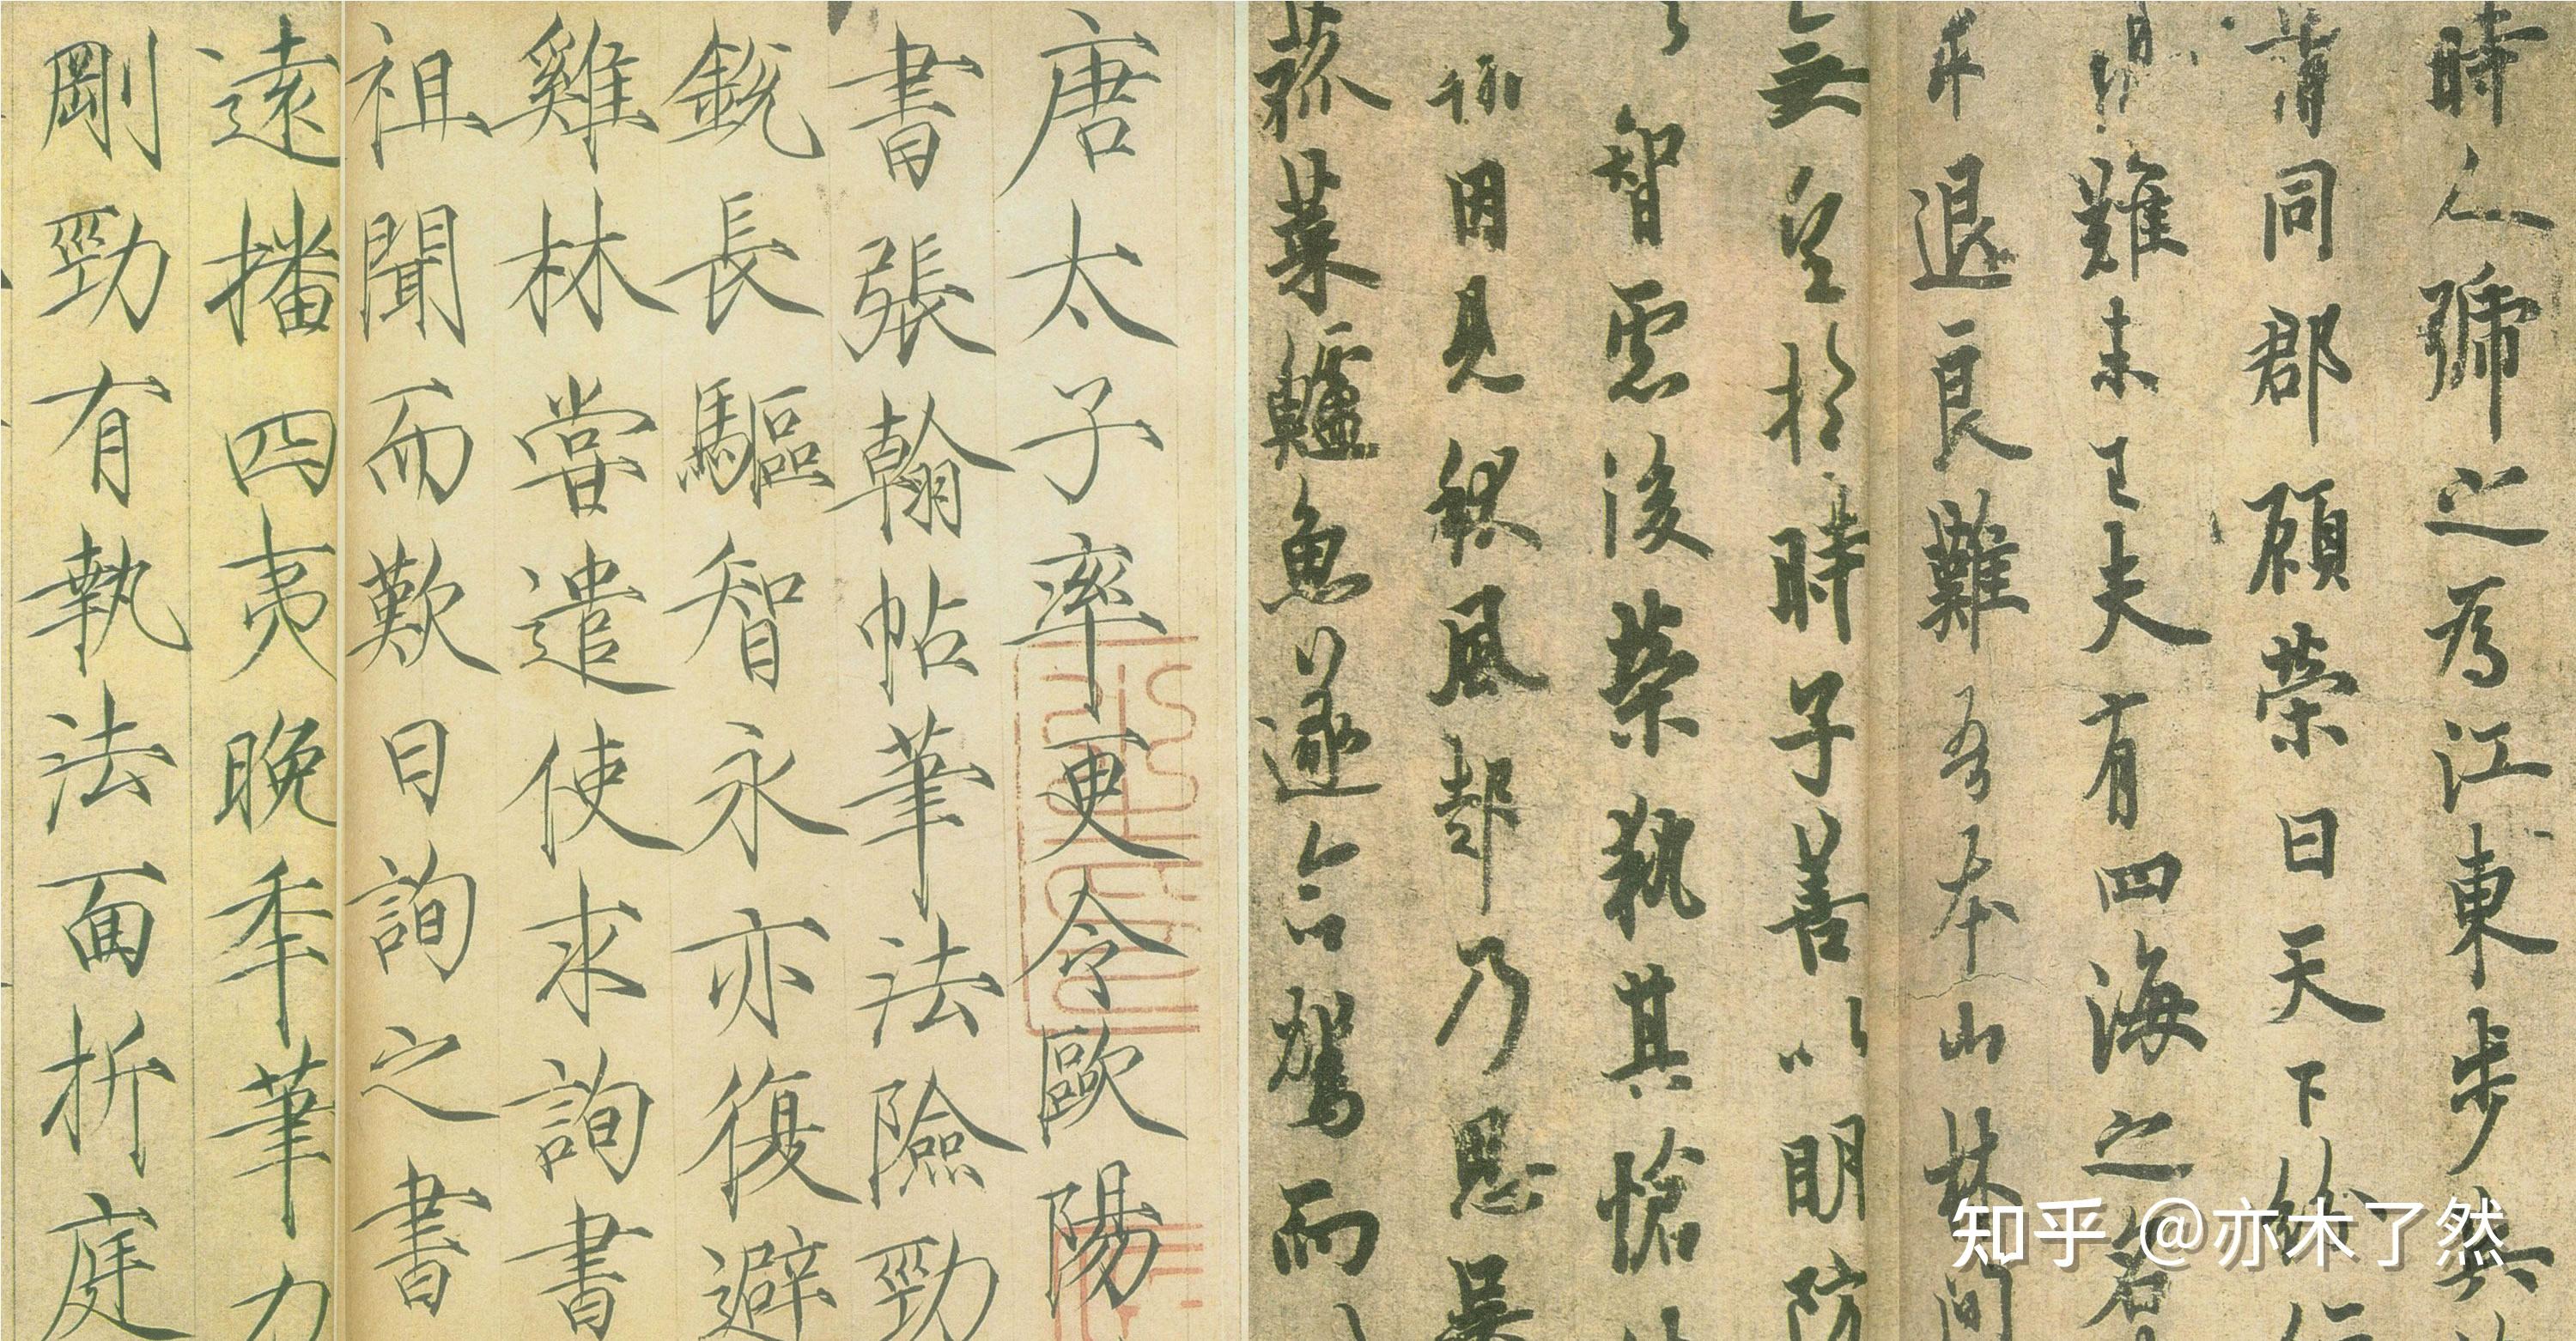 時人號之為江東步兵
同郡顧榮曰天下紛
難未已夫有四海之名
退良難吾本山林間
無望於時子善以明防
智慮後榮執其愴
因見秋風起乃思吳
菰菜鱸魚遂命駕而
唐太子率更令歐陽
書張翰帖筆法險勁
銳長驅智永亦復避
雞林嘗遣使求詢書
祖聞而歎曰詢之書
遠播四夷晚年筆力
剛勁有執法面折庭
知乎 @亦木了然